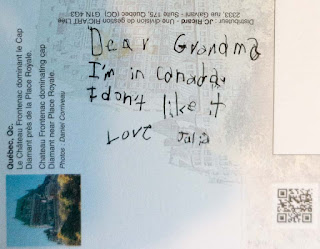 Distributeur : JC Ricard une division de gestion de RICART Ltée
2333, rue Galvani - Suite 175, Québec (QC) G1N 4G3
Dear Grandma
I'm in canada
I dont like it
Love Julia
Québec, Qc.
Le Château Frontenac dominant le Cap
Diamant près de la Place Royale.
Chateau Frontenac dominating cap
Diamant near Place Royale.
Photos : Daniel Corriveau